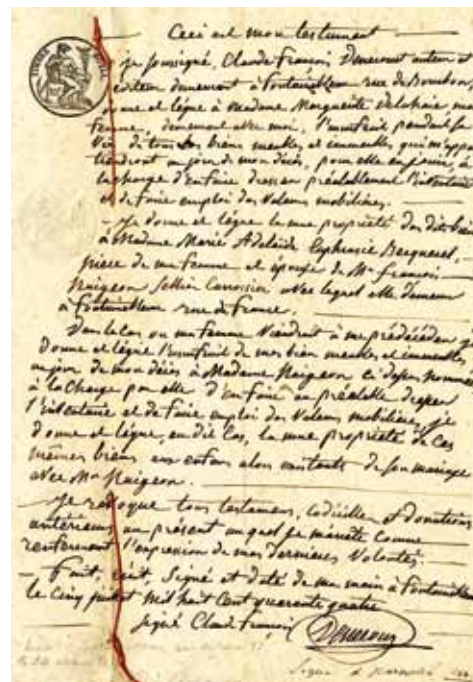 Ceci est mon testament
je soussigné, Claude François Denecourt auteur et
éditeur demeurant à Fontainebleau rue de Bourbon,
donne et lègue à Madame Marguerite Delahaie ma
femme, demeurant avec moi, l'usufruit pendant sa
vie de tous les biens meubles et immeubles, qui m'appar
tiendront au jour de mon décès, pour elle en jouir, à
la charge d'en faire dresser préalablement l'inventaire
et de faire emploi des valeurs mobilières.
- Je donne et lègue la nue propriété des dits biens
à Madame Marie Adelaïde Euphrasie Becquerel,
nièce de ma femme et épouse de Mr François
Naigeon Sellier Carrossier avec lequel elle demeure
à Fontainebleau rue de france.
Dans le cas ou ma femme viendrait à me prédécéder je
donne et lègue l'usufruit de mes bien meubles et immeubles
au jour de mon décès à Madame Naigeon ci dessus nommée
à la charge par elle d'en faire au préalable dresser
l'inventaire et de faire emploi des valeurs mobilières, je
donne et lègue, au dit cas, la nue propriété de ces
mêmes biens aux enfans alors existants de son mariage
avec Mr Naigeon.
- Je révoque tous testamens, codicilles et donations
antérieurs au présent au quel je m'arrête comme
renfermant l'expression de mes dernières volontés.
- Fait, écrit, Signé et daté de ma main à Fontainebleau
le cinq mil huit cent quarante quatre
signé Claude françois Denecourt